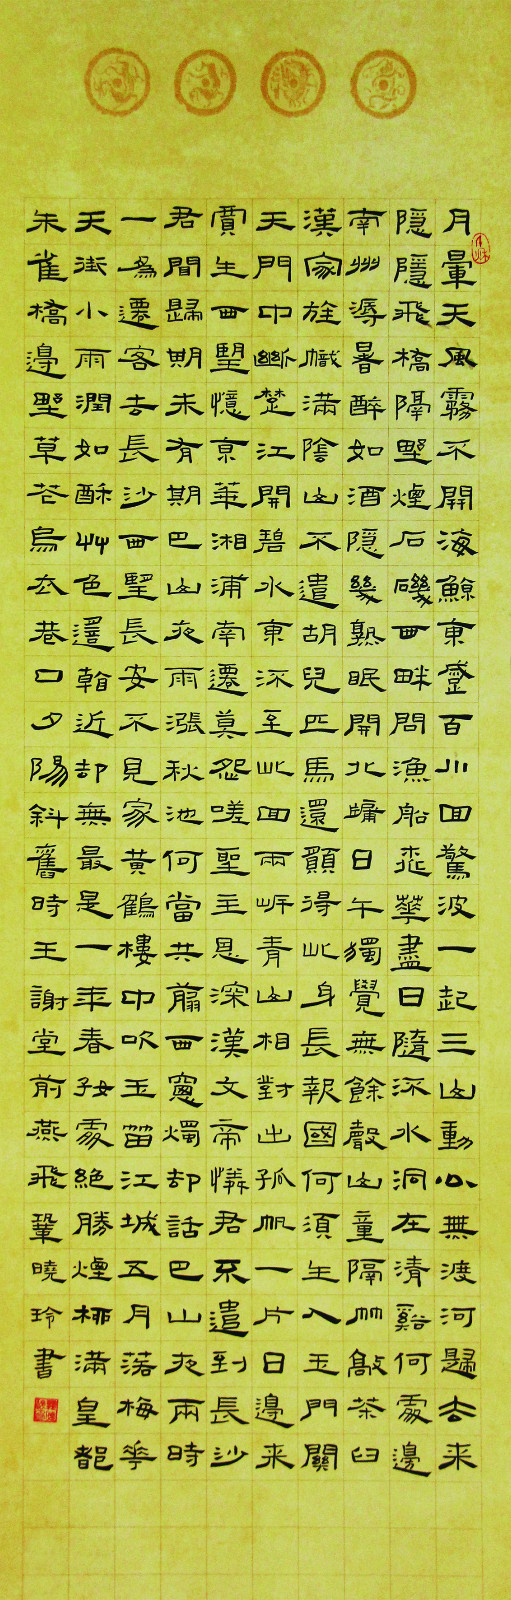 月暈天風霧不開海鯨東蹙百川回驚波一起三山動公無渡河歸去来
隱隱飛橋隔野煙石磯西畔問漁船桃華盡日隨流水洞在清谿何處邊
南州溽暑醉如酒隱幾熟眠開北牖日午獨覺無餘聲山童隔竹敲茶臼
漢家旌幟滿陰山不遣胡兒匹馬還願得此身長報國何須生入玉門關
天門中斷楚江開碧水東流至此回兩岸青山相對出孤帆一片日邊来
賈生西望憶京華湘浦南遷莫怨嗟聖主恩深漢文帝憐君不遣到長沙
君問歸期未有期巴山夜雨漲秋池何當共翦西窗燭却話巴山夜雨時
一為遷客去長沙西望長安不見家黃鶴樓中吹玉笛江城五月落梅花
天街小雨潤如酥艸色遥看近却無最是一年春好處絕勝煙柳滿皇都
朱雀橋邊野草花烏衣巷口夕陽斜舊時王謝堂前燕飛鞏曉玲書